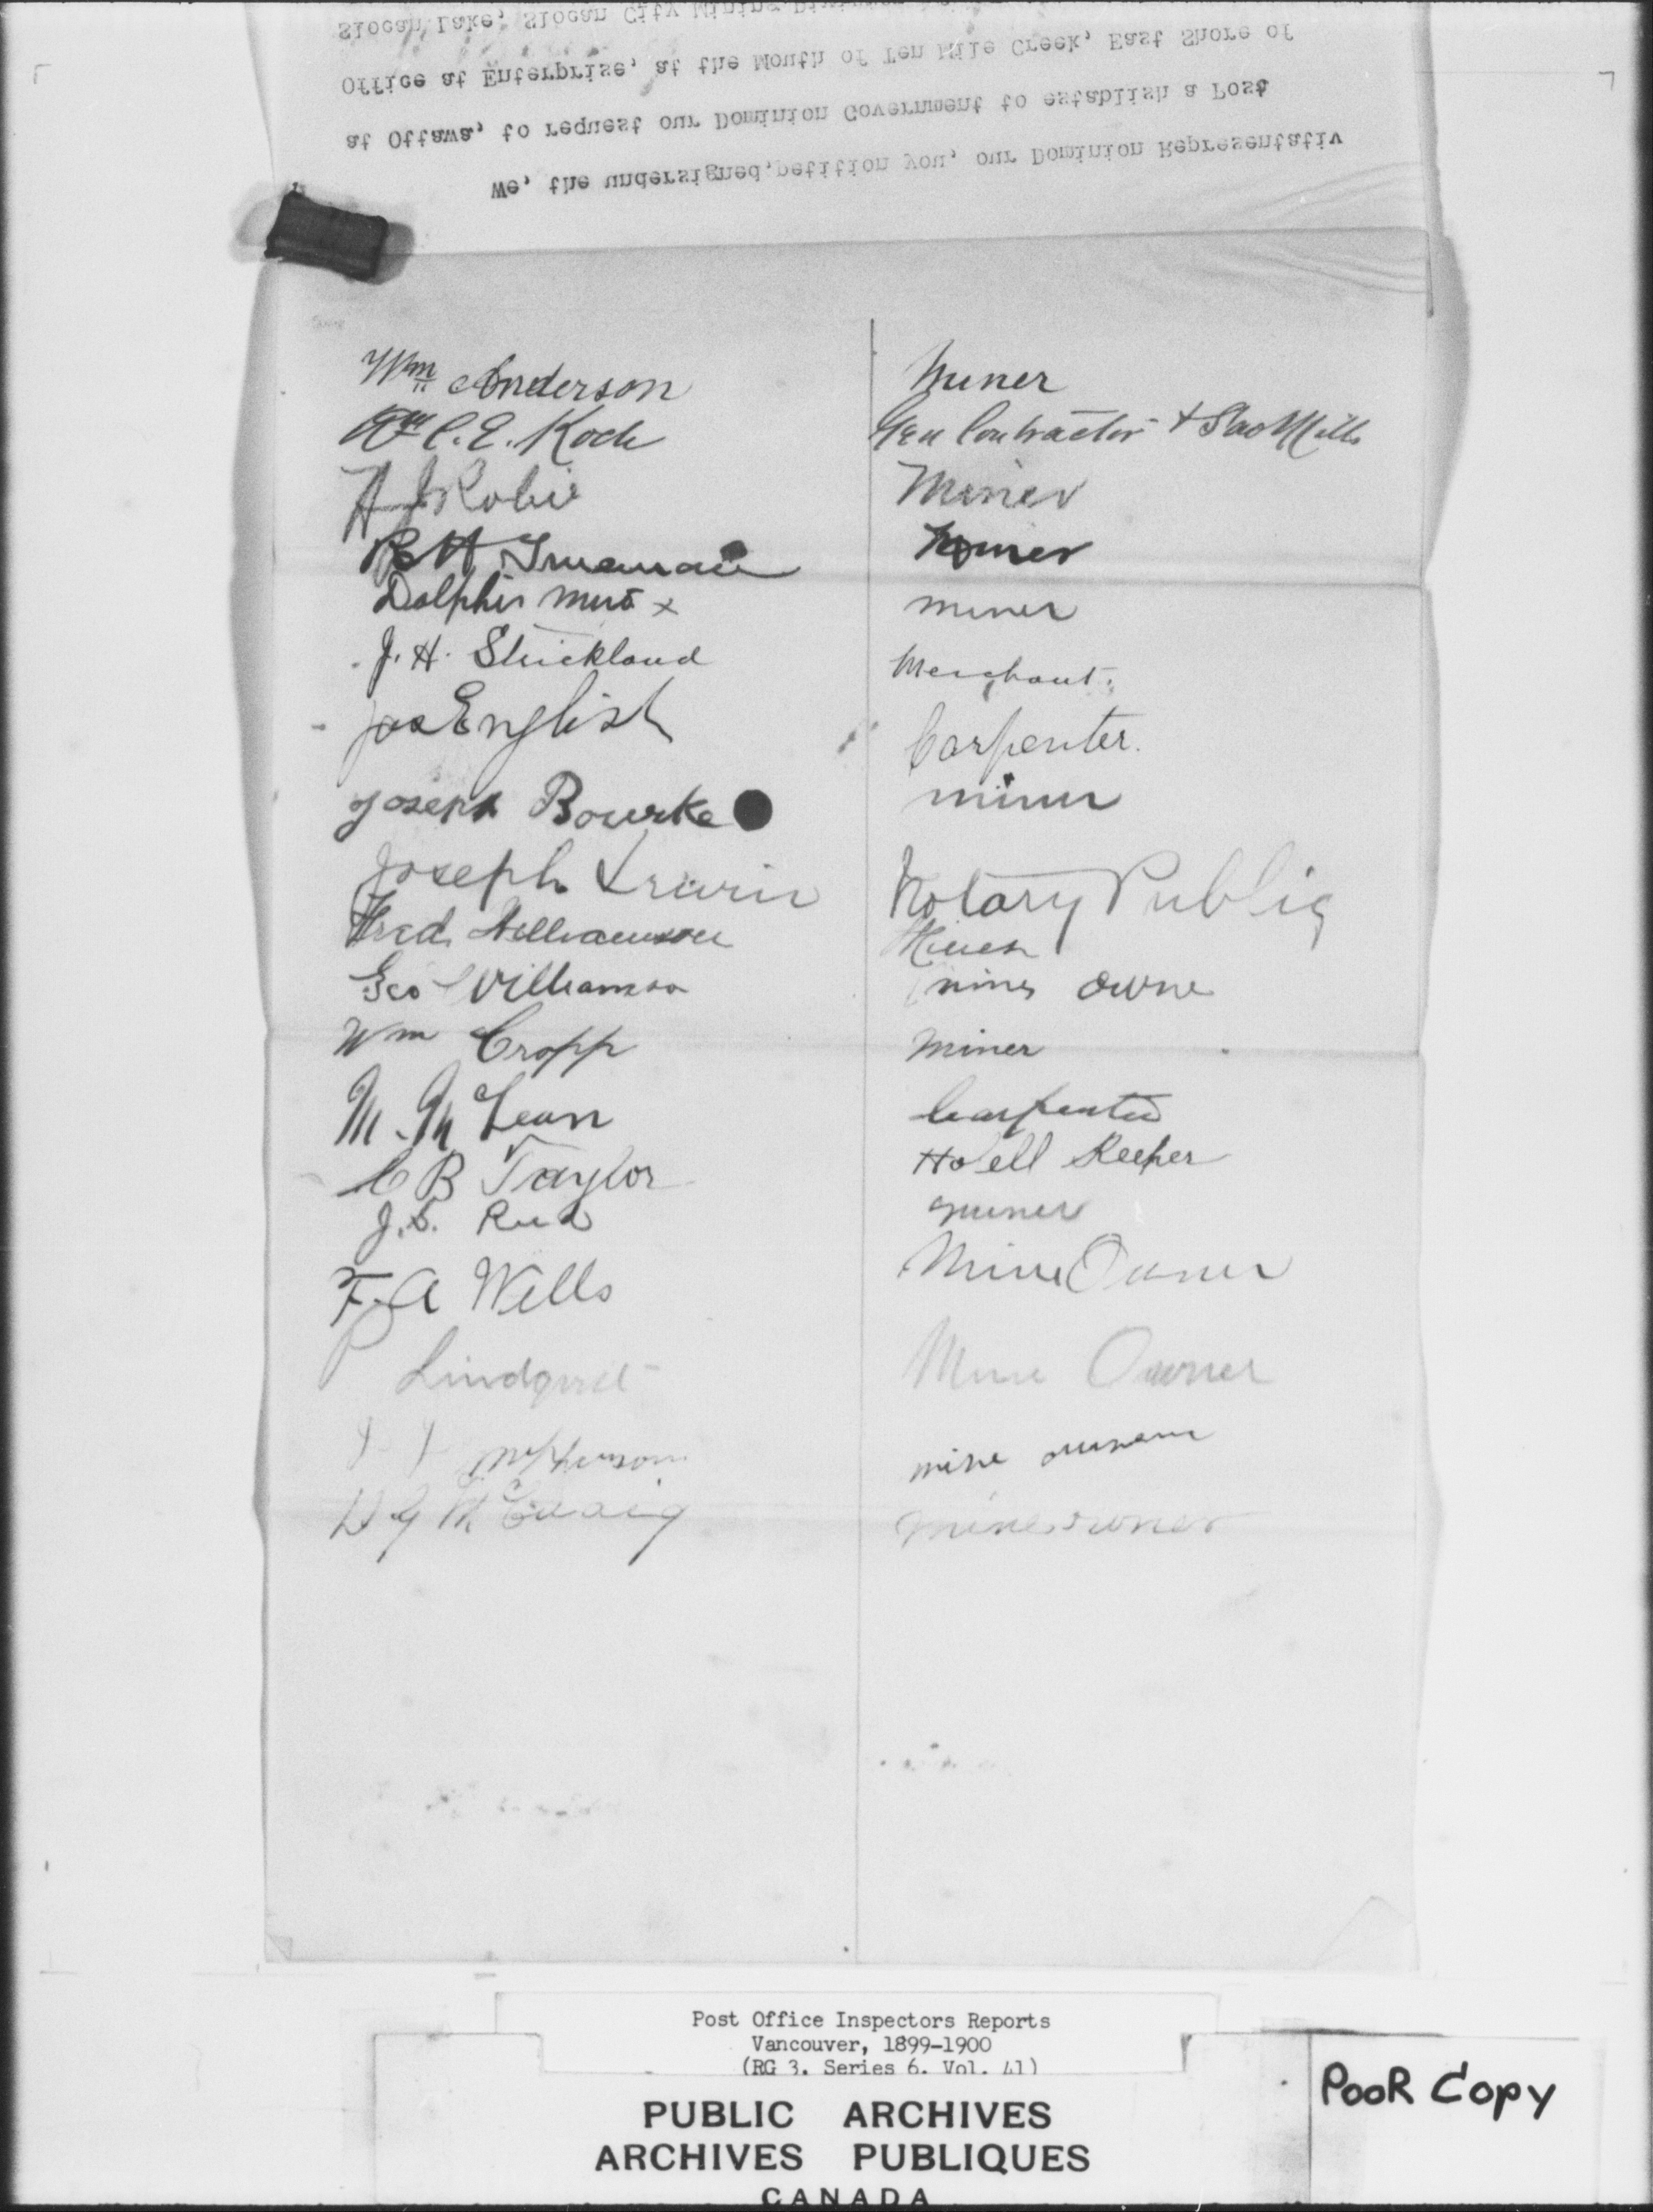 We, the undersigned,petition you, our Dominion Representativ
at Ottawa, to request our Dominion Government to establish a Post
Office at Enterprise, at the Mouth of Ten Mile Creek, East Shore of
Slocan Lake, Slocan City Mining Division
Wm Anderson Miner
Wm C. E. Koch Gen Contractor + Saw Mills
H J Robie Miner
R H Trueman Miner
Dolphis x miner
J. H. Strickland Merchant.
Jas English Carpenter.
Joseph Bourke miner
Joseph Irwin Notary Public
Fred Williamson Miner
Geo Williamson mine owne
Wm Cropp Miner
M. Mc Lean Carpenter
C B Taylor Hotell Keeper
J. S. Reid miner
F. A Wells Mine Owner
P Lindquist Mine Owner
McPherson mine
D G McCuaig mine owner
Post Office Inspectors Reports
Vancouver, 1899-1900
(RG 3. Series 6. Vol. 41)
PooR Copy
PUBLIC ARCHIVES
ARCHIVES PUBLIQUES
CANADA